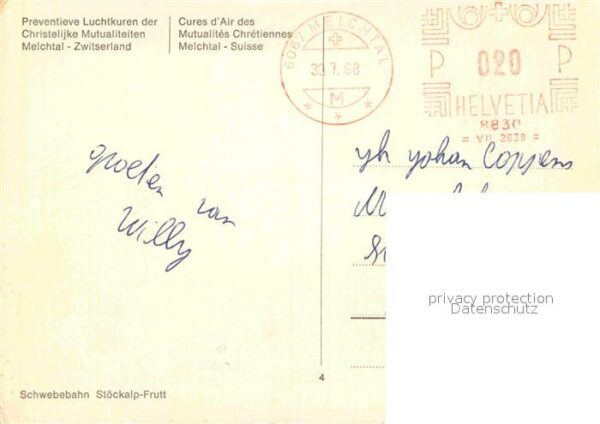 Preventieve Luchtkuren der
Christelijke Mutualiteiten
Melchtal - Zwitserland
Cures d'Air des
Mutualités Chrétiennes
Melchtal - Suisse
6067 MELCHTAL
30.7.68
M
P 020 P
HELVETIA
8830
= VII. 2638 =
groeten van
Willy
yohan Coppens
privacy protection
Datenschutz
4
Schwebebahn Stöckalp-Frutt